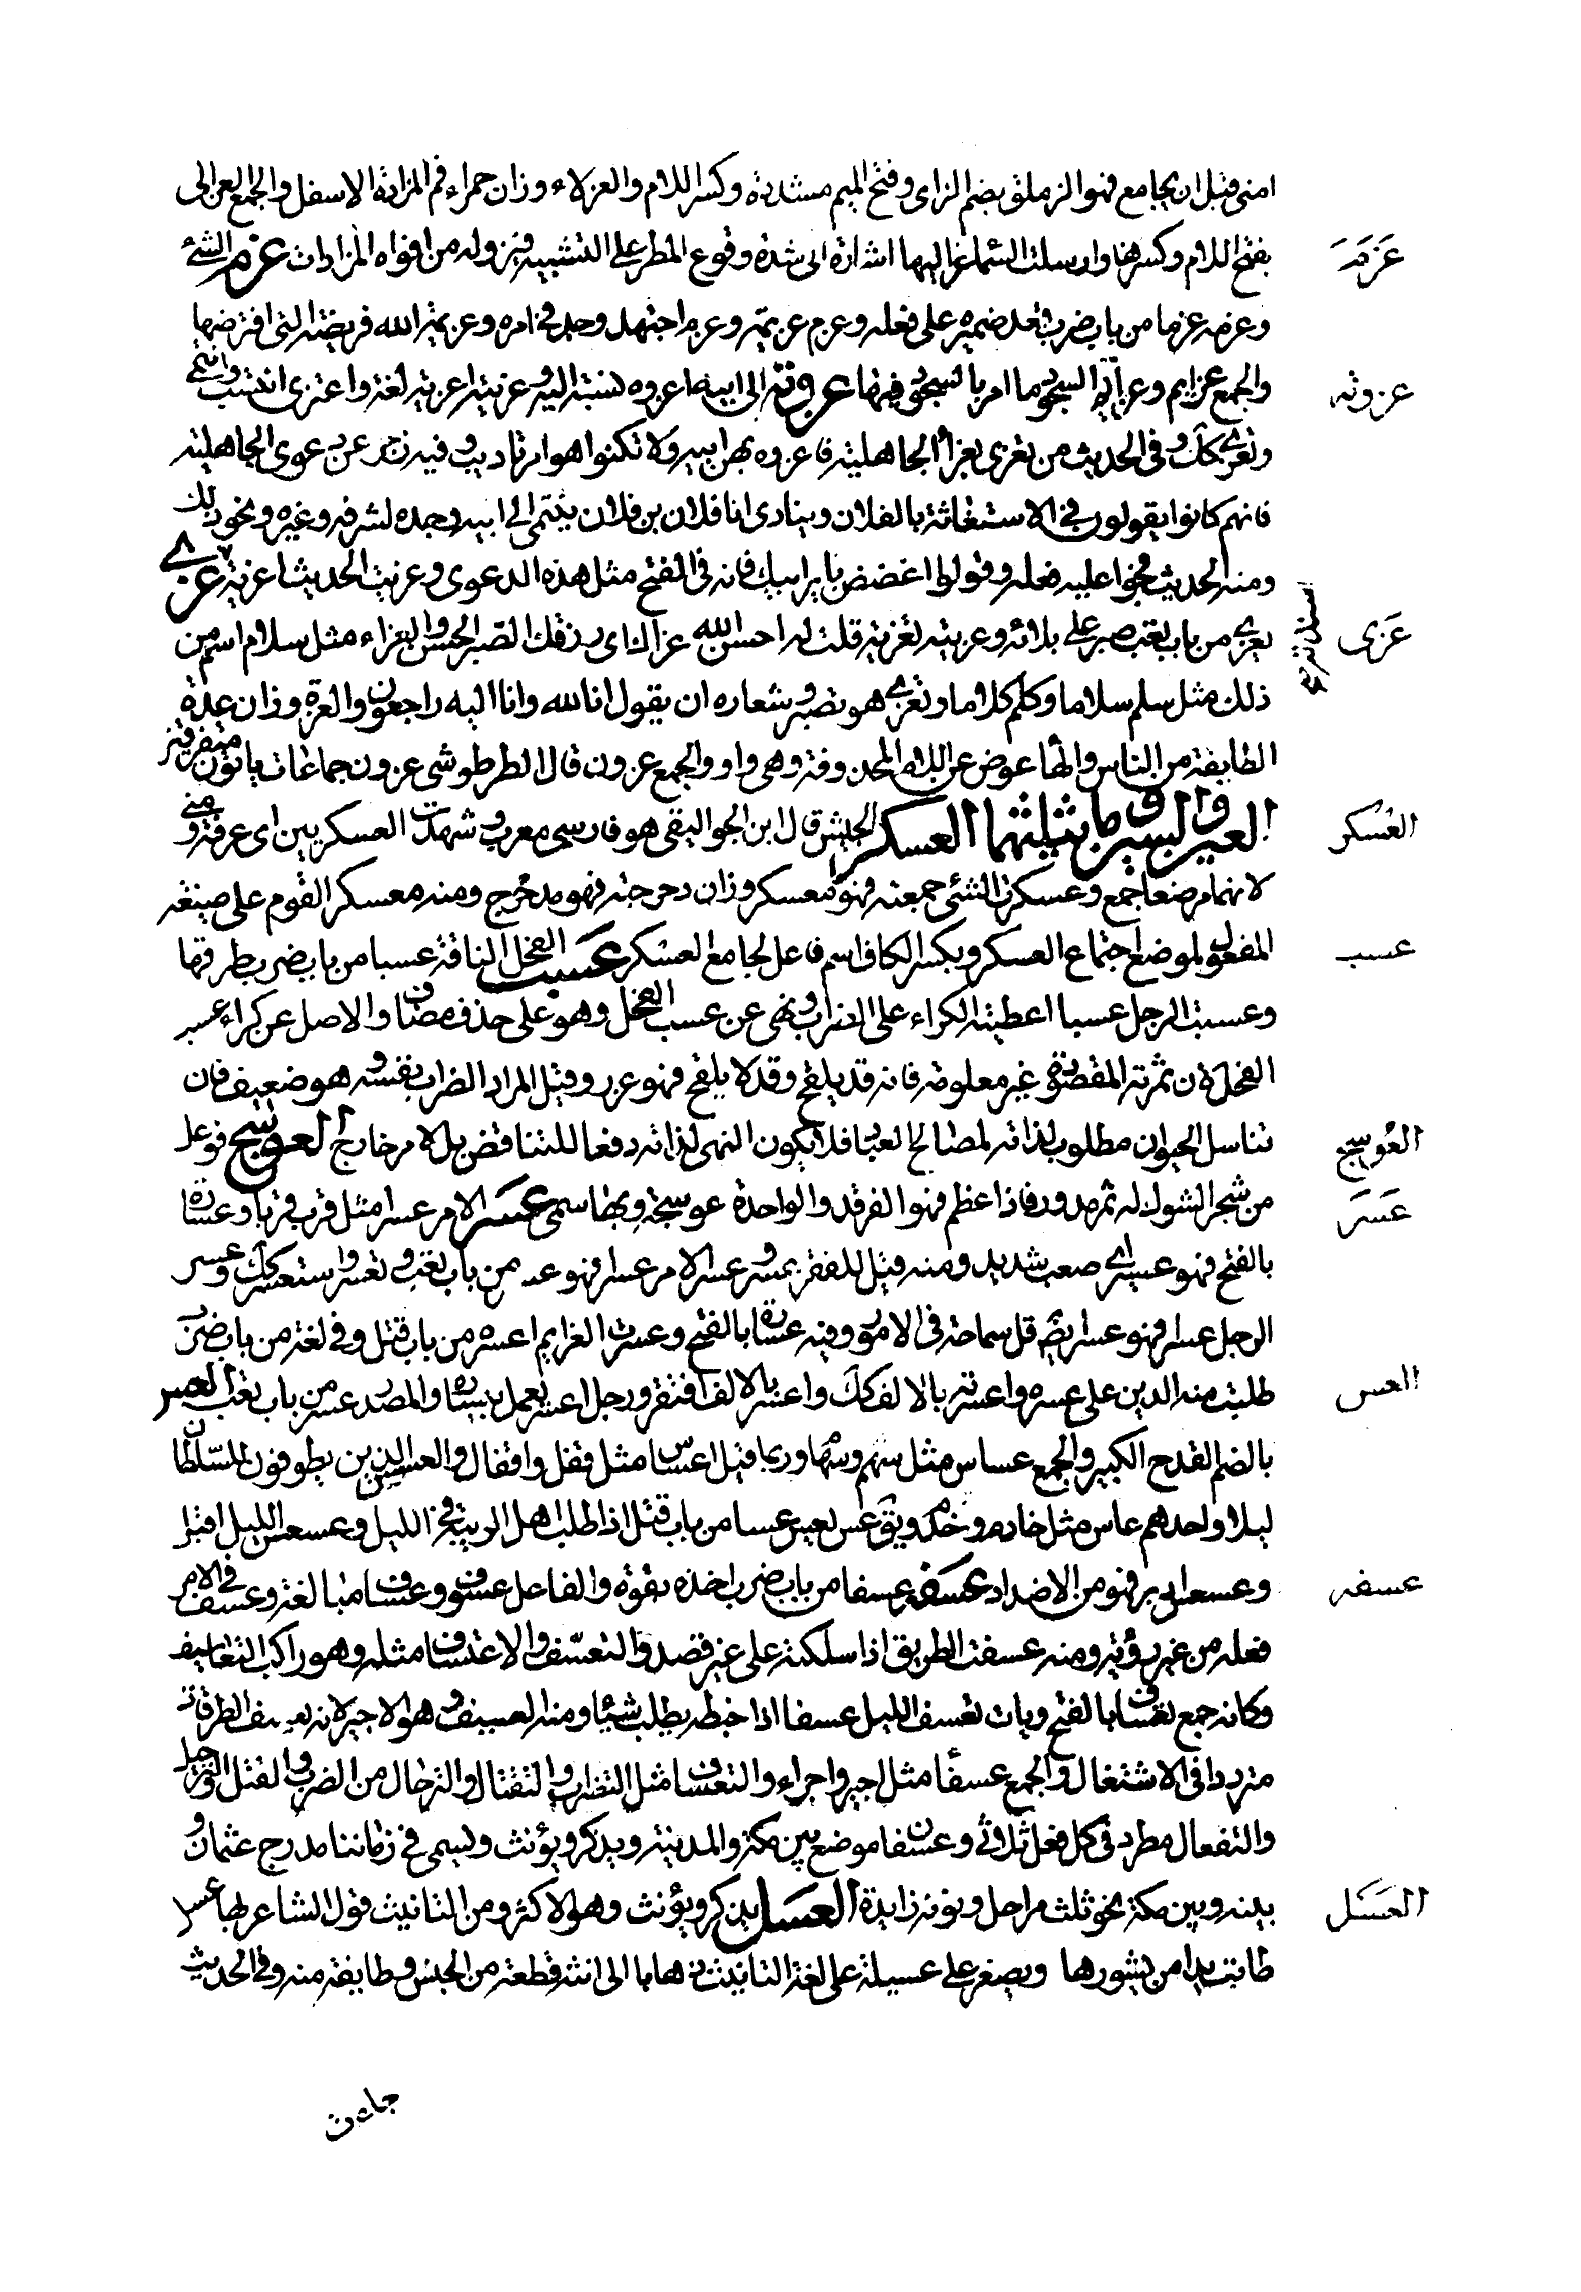 امنى قبل ان يجامع فهو الزملق بضم الزاى وفتح الميم مشددة وكسر اللام والعزلاء وزان حمراء فم المزادة الاسفل والجمع العزالى
بفتح اللام وكسرها وارسلت السماء عزاليها اشارة الى شدة وقوع المطر على التشبيه بنزوله من افواه المزادات عزم الشئ
عَزَمَ
وعزمه عزما من باب ضرب عقد ضميره على فعله وعزم عزيمة وعزمة اجتهد وجد فى امره وعزيمة الله فريضته التى افترضها
والجمع عزايم وعزايم السجود ما امر بالسجود فيها عزوته الى ابيه اعزوه نسبته اليه وعزيته اعزيه لغة واعتزى انتسب وانتمى
عزوته
وتعزى كك وفى الحديث من تعزى بعزاء الجاهلية فاعضوه بهن ابيه ولا تكنوا هو امر تاديب وفيه زجر عن دعوى الجاهلية
فانهم كانوا يقولون فى الاستغاثة يا لفلان وينادى انا فلان بن فلان ينتمى الى ابيه وجده لشرفه وغيره ونحو ذلك
ومنه الحديث فعله وقولوا اغضض باير ابيك فانه فى القبح مثل هذه الدعوى وعزيت الحديث اعزيه عزى
يعزى من باب تعب صبر على بلائه وعزيته تعزية قلت له احسن الله عزاك اى رزقك الصبر الحسن والعزاء مثل سلام اسم من
عَزى
ذلك مثل سلم سلاما وكلم كلاما وتعزى هو تصبر وشعاره ان يقول انا لله وانا اليه راجعون والعزة وزان عدة
الطايفة من الناس والهاء عوض عن اللام المحذوفة وهى واو والجمع عزون قال الطرطوشى عزون جماعات ياتون متفرقين
العين والسين وما يثلثهما العسكر الجيش قال ابن الجواليقى هو فارسى معرب وشهدت العسكرين اى عرفة ومنى
العسْكر
لانهما موضعا جمع وعسكرت الشئ جمعته فهو معسكر وزان دحرجته فهو مدحرج ومنه معسكر القوم على صيغة
المفعول لموضع اجتماع العسكر وبكسر الكاف اسم فاعل لجامع العسكر عسب الفحل الناقة عسبا من باب ضرب طرقها
عسب
وعسبت الرجل عسبا اعطيته الكراء على الضراب ونهى عن عسب الفحل وهو على حذف مضاف والاصل عن كراء عسب
الفحل لان ثمرته المقصودة غير معلومة فانه قد يلقح وقد لا يلقح فهو غرر وقيل المراد الضراب نفسه وهو ضعيف فان
تناسل الحيوان مطلوب لذاته لمصالح العباد فلا يكون النهى لذاته دفعا للتناقض بل لامر خارج العوسج فوعل
العُوسج
من شجر الشوك له ثمر مدور فاذا عظم فهو الغرقد والواحدة عوسجة وبها سمى عسر الامر عسرا مثل قرب قربا وعسارة
عَسَرَ
بالفتح فهو عسير اى صعب شديد ومنه قيل للفقر عسر وعسر الامر عسرا فهو عسر من باب تعب وتعسر واستعسر كك وعسر
الرجل عسرا فهو عسر ايضا قل سماحته فى الامور وفيه عسارة بالفتح وعسرت الغريم اعسره من باب قتل وفى لغة من باب ضرب
طلبت منه الدين على عسره واعسرته بالالف كك واعسر بالالف افتقر ورجل اعسر يعمل بيساره والمصدر عسر من باب تعب العس
العس
بالضم القدح الكبير والجمع عساس مثل سهم وسهام وربما قيل اعساس مثل قفل واقفال والعسس الذين يطوفون للسلطان
ليلا واحدهم عاس مثل خادم وخدم ويق عس يعس عسا من باب قتل اذا طلب اهل الريبة فى الليل وعسعس الليل اقبل
وعسعس ادبر فهو من الاضداد عسفه عسفا من باب ضرب اخذه بقوة والفاعل عسوف وعساف مبالغة وعسف فى الامر
عسفه
فعله من غير روية ومنه عسفت الطريق اذا سلكته على غير قصد والتعسف والاعتساف مثله وهو راكب التعاسيف
وكانه جمع تعساف بالفتح وبات يعسف الليل عسفا اذا خبطه يطلب شيئا ومنه العسيف وهو الاجير لانه يعسف الطرقات
مترددا فى الاشتغال والجمع عسفاء مثل اجير واجراء والتعساف مثل التضراب والتقتال والترحال من الضرب والقتل والرحيل
والتفعال مطرد فى كل فعل ثلاثى وعسفان موضع بين مكة والمدينة ويذكر ويؤنث ويسمى فى زماننا مدرج عثمان و
بينه وبين مكة نحو ثلث مراحل ونونه زايدة العسل يذكر ويؤنث وهو الاكثر ومن التانيث قول الشاعر بها عسل
العَسَل
طابت يدا من يشورها ويصغر على عسيلة على لغة التانيث ذهابا الى انها قطعة من الجنس وطايفة منه وفى الحديث